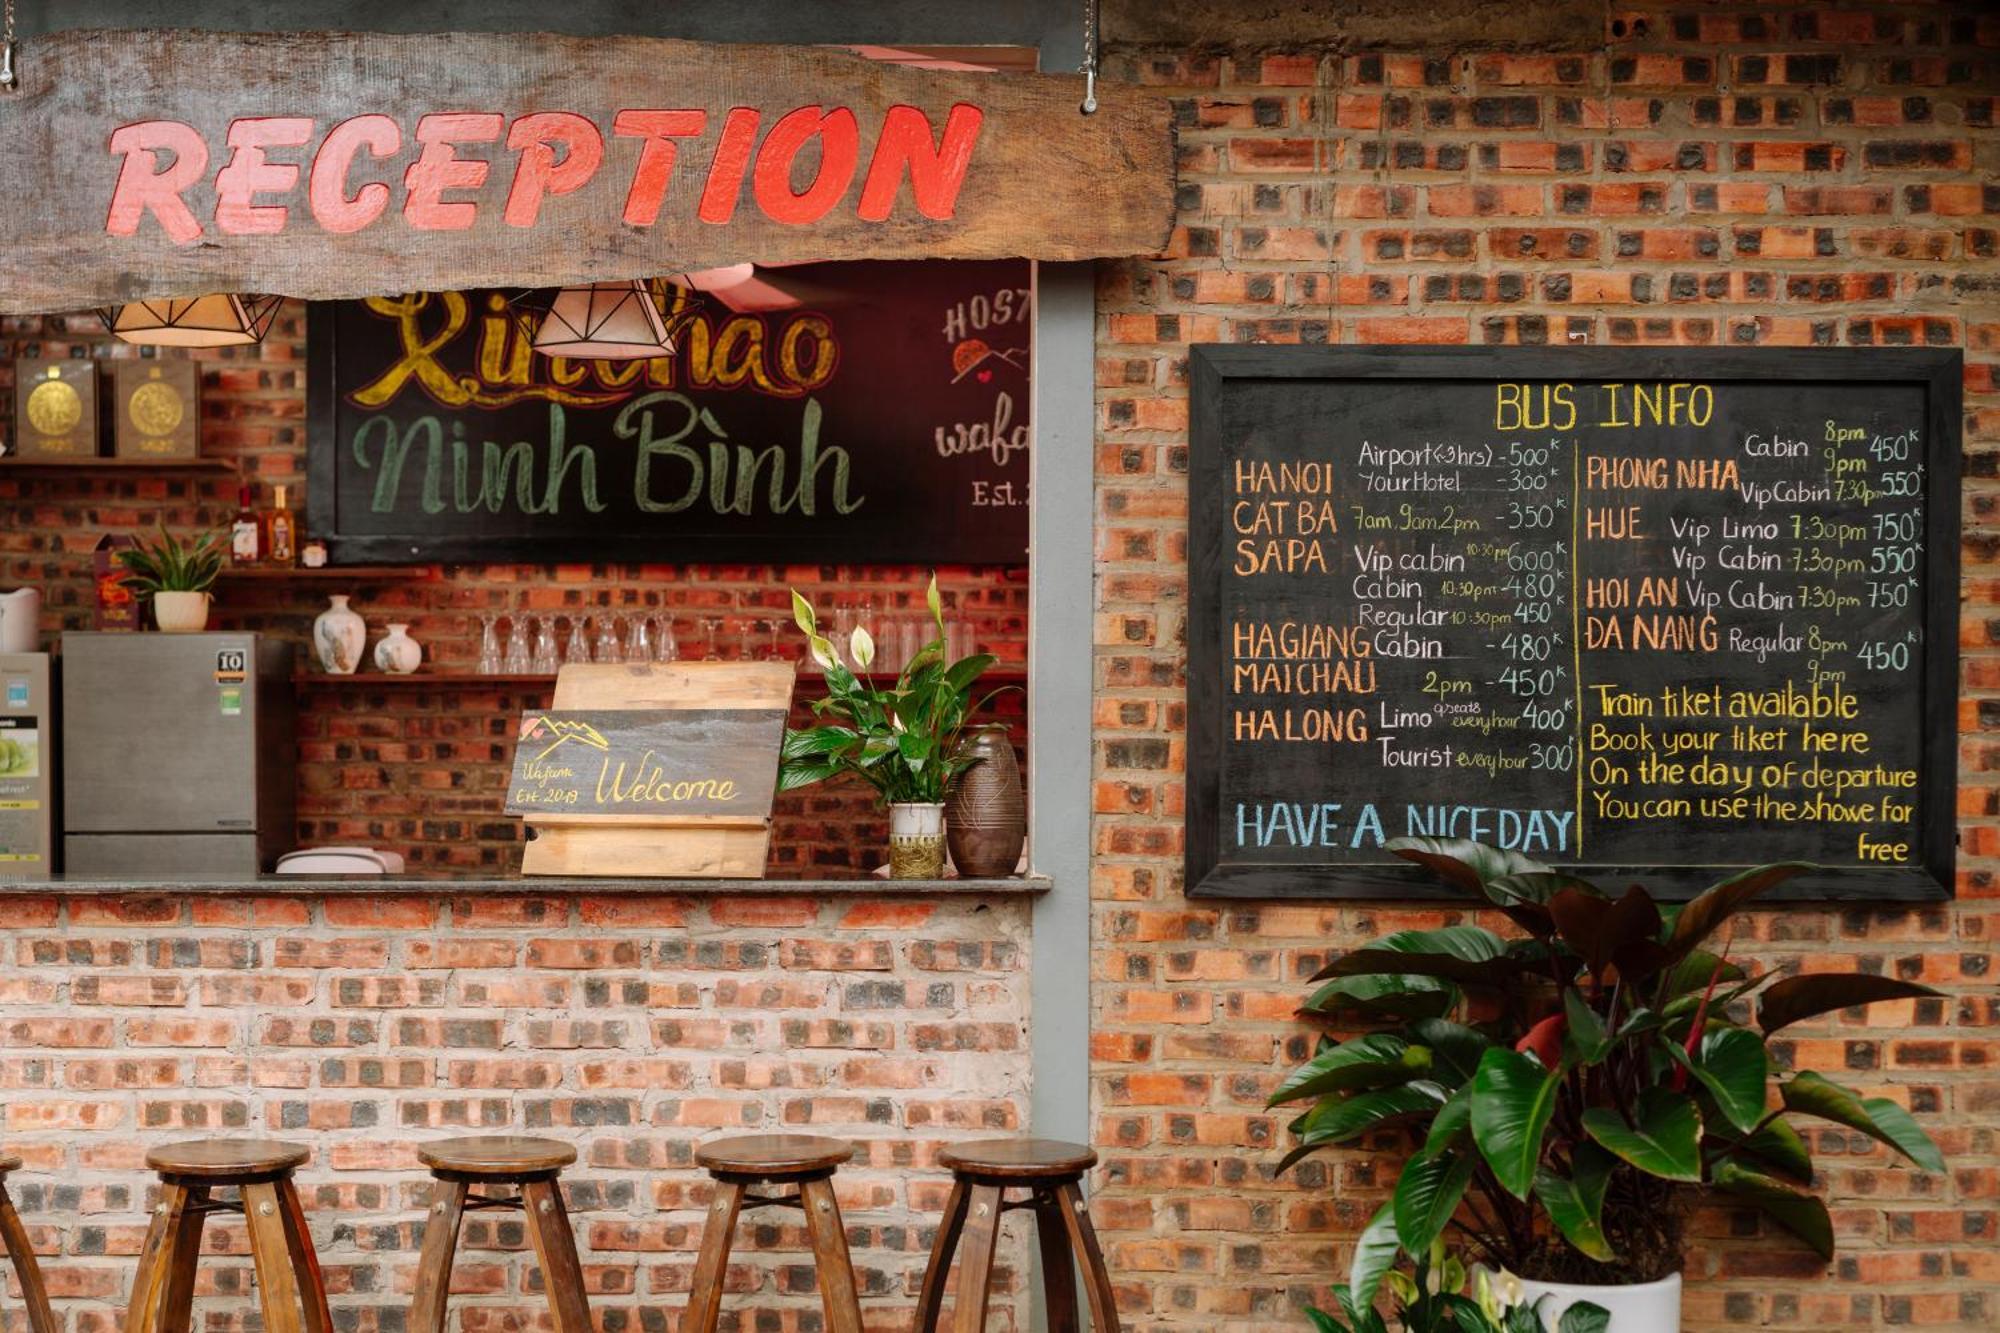 RECEPTION
Xin chao
Ninh Bình
HOST
wafa
Est.
Wafami
Est. 2019
Welcome
10
BUS INFO
HANOI Airport(~3hrs) -500K
Your Hotel -300K
CAT BA 7am, 9am, 2pm -350K
SAPA Vip cabin 10:30pm 600K
Cabin 10:30pm -480K
Regular 10:30pm 450K
HAGIANG Cabin -480K
MAI CHAU 2pm -450K
HALONG Limo 9seats every hour 400K
Tourist every hour 300K
HAVE A NICE DAY
PHONG NHA Cabin 8pm 9pm 450K
Vip Cabin 7:30pm 550K
HUE Vip Limo 7:30pm 750K
Vip Cabin 7:30pm 550K
HOI AN Vip Cabin 7:30pm 750K
ĐA NANG Regular 8pm 9pm 450K
Train tiket available
Book your tiket here
On the day of departure
You can use the showe for
free